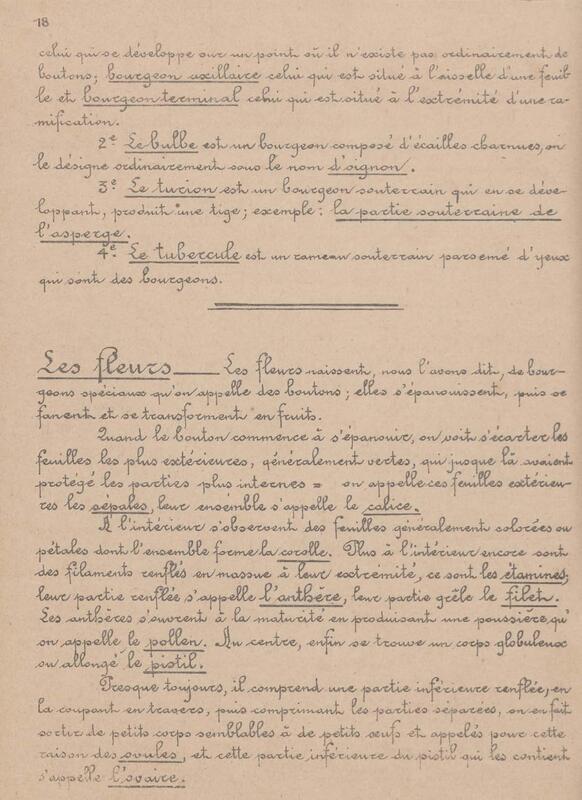 18
celui qui se développe sur un point où il n'existe pas ordinairement de
boutons; bourgeon axillaire celui qui est situé à l'aisselle d'une feuil
le et bourgeon terminal celui qui est situé à l'extrémité d'une ra-
mification.
2e Le bulbe est un bourgeon composé d'écailles charnues, on
le désigne ordinairement sous le nom d'oignon.
3e Le turion est un bourgeon souterrain qui en se déve-
loppant, produit une tige; exemple: la partie souterraine de
l'asperge.
4e Le tubercule est un rameau souterrain parsemé d'yeux
qui sont des bourgeons.
Les fleurs ___ Les fleurs naissent, nous l'avons dit, de bour-
geons spéciaux qu'on appelle des boutons; elles s'épanouissent, puis se
fanent et se transforment en fruits.
Quand le bouton commence à s'épanouir, on voit s'écarter les
feuilles les plus extérieures, généralement vertes, qui jusque là avaient
protégé les parties plus internes = on appelle ces feuilles extérieu-
res les sépales, leur ensemble s'appelle le calice.
A l'intérieur s'observent des feuilles généralement colorées ou
pétales dont l'ensemble forme la corolle. Plus à l'intérieur encore sont
des filaments renflés en massue à leur extrémité, ce sont les étamines;
leur partie renflée s'appelle l'anthère, leur partie grêle le filet.
Les anthères s'ouvrent à la maturité en produisant une poussière qu'
on appelle le pollen. Au centre, enfin se trouve un corps globuleux
ou allongé le pistil.
Presque toujours, il comprend une partie inférieure renflée, en
la coupant en travers, puis comprimant les parties séparées, on en fait
sortir de petits corps semblables à de petits œufs et appelés pour cette
raison des ovules, et cette partie inférieure du pistil qui les contient
s'appelle l'ovaire.